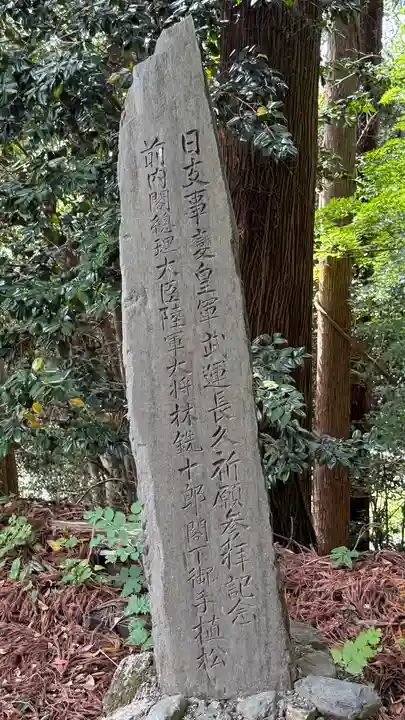 日支事變皇軍武運長久祈願参拜記念
前内閣總理大臣陸軍大将林銑十郎閣下御手植松